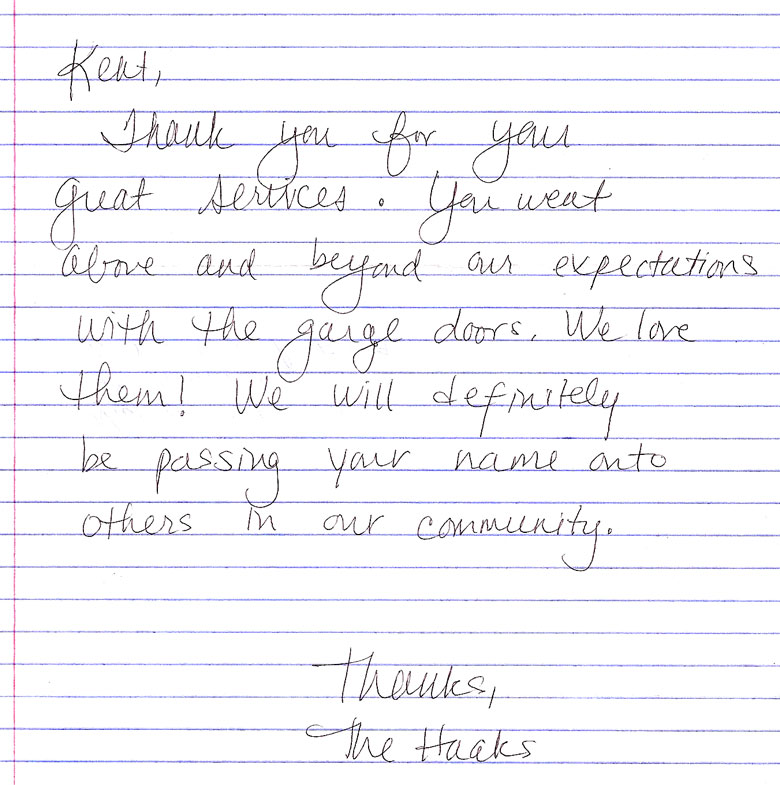 Kent,
Thank you for your
great services. You went
above and beyond our expectations
with the garge doors. We love
them! We will definitely
be passing your name onto
others in our community.
Thanks,
The Haaks